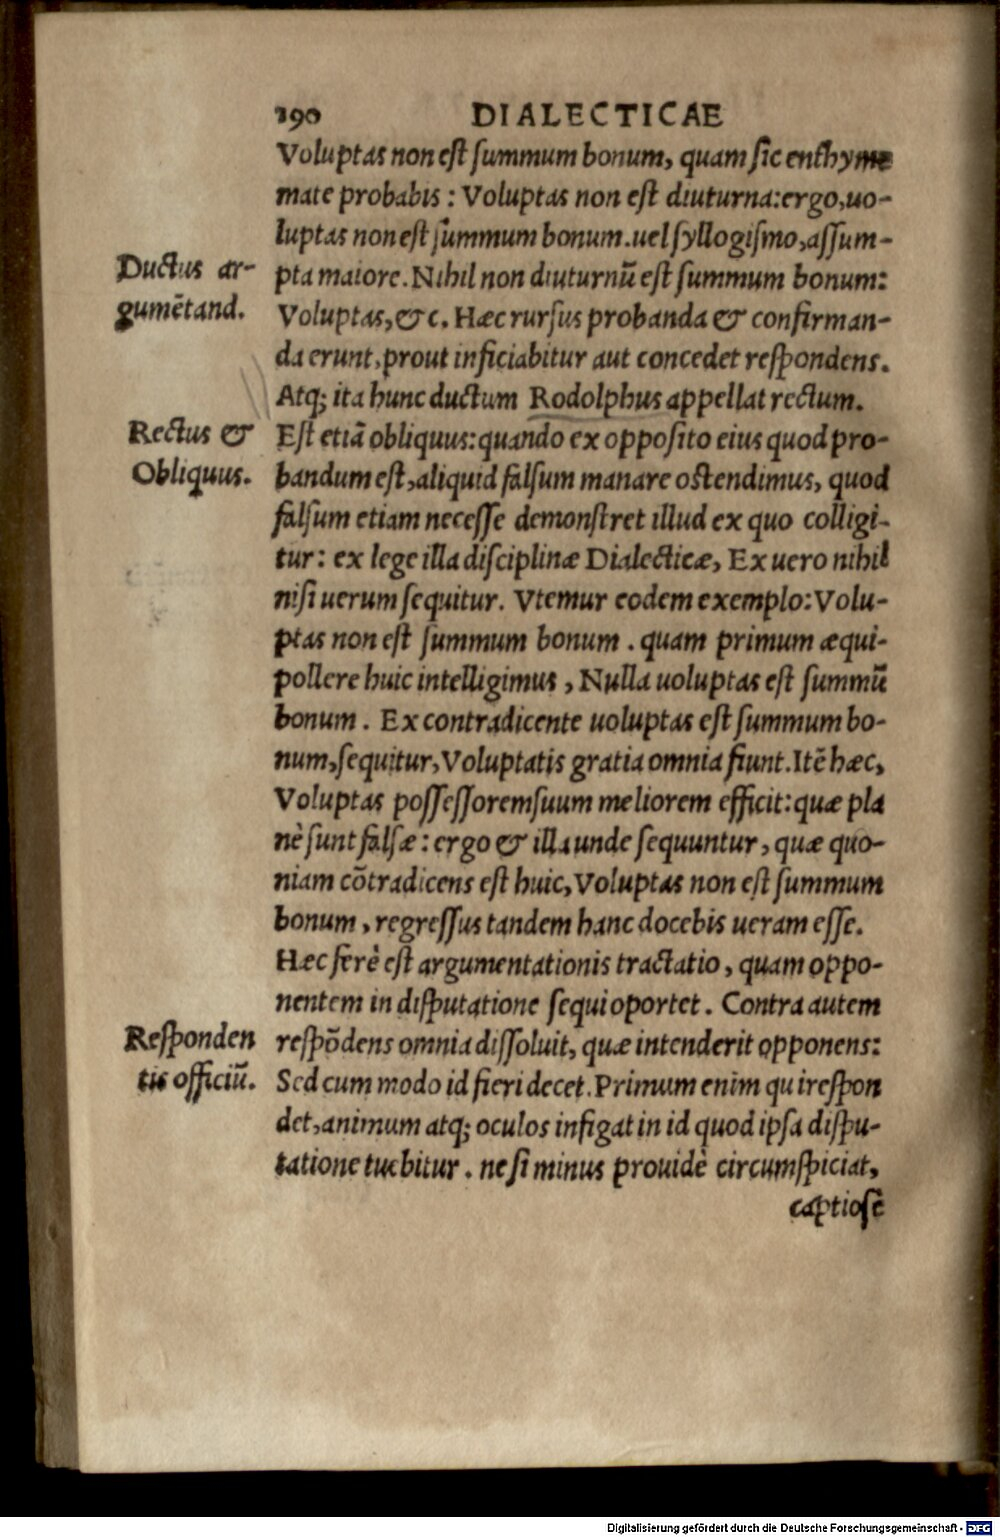 190 DIALECTICAE
Voluptas non est summum bonum, quam sic enthyme
mate probabis : Voluptas non est diuturna:ergo,uo-
luptas non est summum bonum.uel syllogismo,assum-
Ductus ar-
gumētand.
pta maiore. Nihil non diuturnū est summum bonum:
Voluptas,& c. Hæc rursus probanda & confirman-
da erunt,prout inficiabitur aut concedet respondens.
Atq; ita hunc ductum Rodolphus appellat rectum.
Rectus &
Obliquus.
Est etiā obliquus:quando ex opposito eius quod pro-
bandum est,aliquid falsum manare ostendimus, quod
falsum etiam necesse demonstret illud ex quo colligi-
tur: ex lege illa disciplinæ Dialecticæ, Ex uero nihil
nisi uerum sequitur. Vtemur eodem exemplo:Volu-
ptas non est summum bonum . quam primum æqui-
pollere huic intelligimus , Nulla uoluptas est summū
bonum . Ex contradicente uoluptas est summum bo-
num,sequitur,Voluptatis gratia omnia fiunt.Itē hæc,
Voluptas possessorem suum meliorem efficit:quæ pla
nè sunt falsæ: ergo & illa unde sequuntur, quæ quo-
niam cōtradicens est huic,Voluptas non est summum
bonum , regressus tandem hanc docebis ueram esse.
Hæc ferè est argumentationis tractatio, quam oppo-
nentem in disputatione sequi oportet. Contra autem
Responden
tis officiū.
respōdens omnia dissoluit, quæ intenderit opponens:
Sed cum modo id fieri decet. Primum enim qui respon
det,animum atq; oculos infigat in id quod ipsa dispu-
tatione tuebitur . ne si minus prouidè circumspiciat,
captiosè
Digitalisierung gefördert durch die Deutsche Forschungsgemeinschaft - DFG